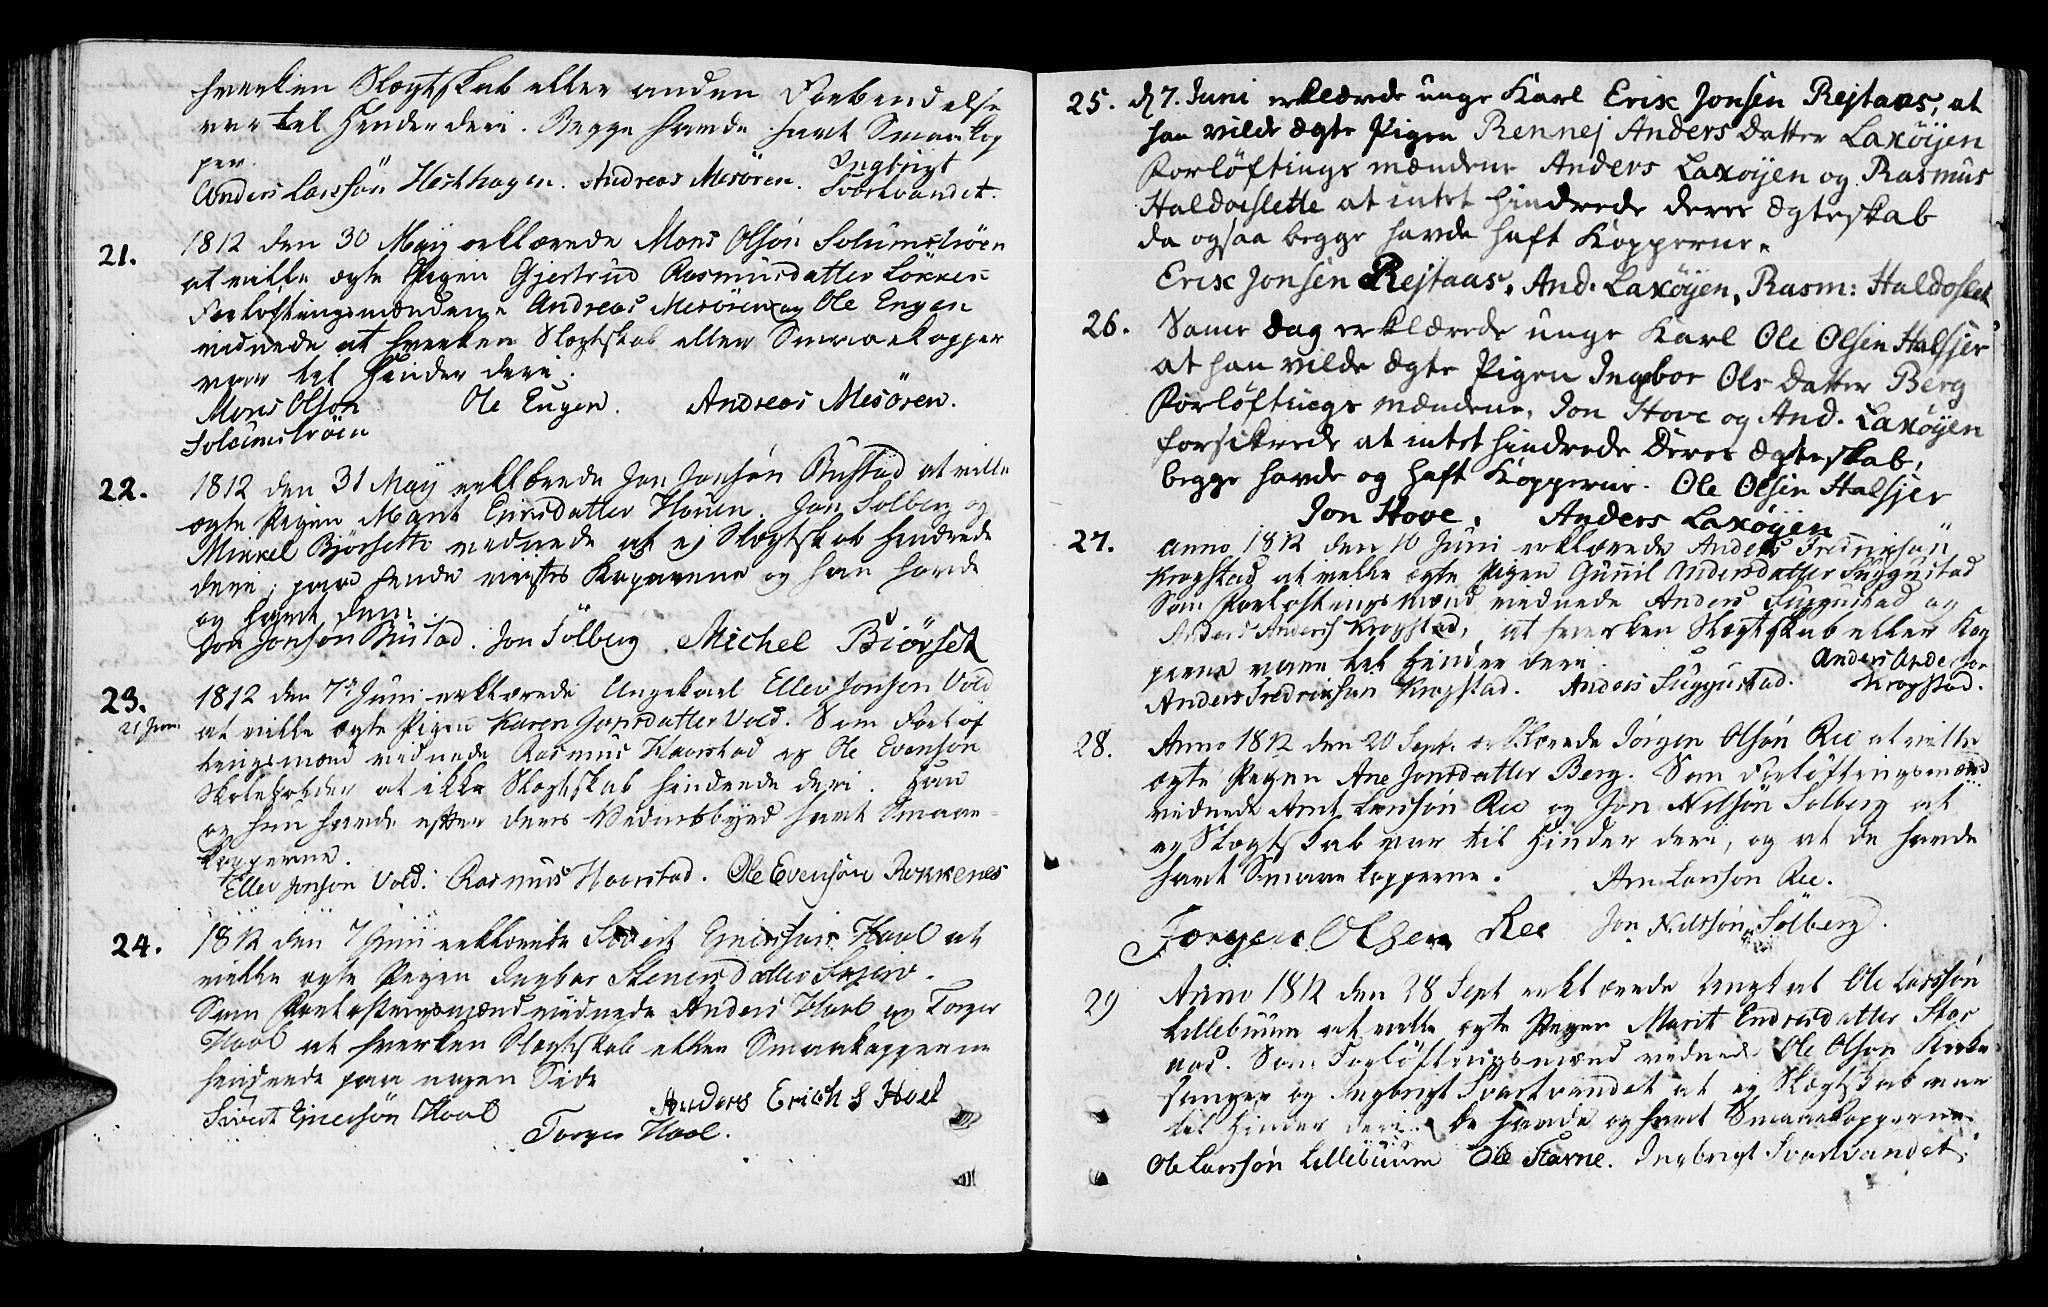 hverken Slægtskab eller anden Forbindelse
var til Hinder deri. Begge havde havt Smaakop
per.
Anders Larssön Hesthagen. Andreas Mesören. Ingbrigt Svartvandet.
21. 1812 den 30 Maij erklærede Mons Olsön Solumströen
at ville ægte Pigen Gjertrud Rasmusdatter Lökken
Forlöftningsmændene Andreas Mesören og Ole Engen
vidnede at hverken Slægtskab eller Smaaekopper
var til Hinder deri.
Mons Olson Ole Engen. Andreas Mesören.
Solumströen
22. 1812 den 31 Maij erklærede Jon Jonsön Bustad at ville
ægte Pigen Marit Eirsdatter Houen. Jon Solberg og
Mikkel Björsette vidnede at ej Slægtskab hindrede
deri; paa hende vistes Kopperne og han havde
og havt dem.
Jon Jonson Bustad. Jon Sölberg. Michel Biörset
23. 1812 den 7de Juni erklærede Ungekarl Ellev Jonson Vold
21 Jun. at ville ægte Pigen Karen Jonsdatter Vold. Som Forlöf
tningsmænd vidnede Rasmus Haarstad og Ole Evenson
Skoleholder at ikke Slægtskab hindrede deri. Han
og hun havde efter deres Vidnesbyrd havt Smaae-
kopperne.
Ellev Jonson Vold. Rasmus Haarstad. Ole Evensön Rokkenes
24. 1812 den 7 Juni erklærede Sivert Ericksön Hool at
ville ægte Pigen Ingbor Stenersdatter
Som Forlöftningsmænd vidnede Anders Hool og Torger
Hool at hverken Slægtskab eller Smaakopperne
hindrede paa nogen Side
Sivert Ericsön Hool Anders Erich S Hoel
Torger Hool.
25. d 7. Juni erklærede unge Karl Erik Jonsen Rejtaas, at
han vilde ægte Pigen Rennej Anders Datter Laxöyen
Forlöftings mændene Anders Laxöyen og Rasmus
Haldorslette at intet hindrede deres ægteskab
da ogsaa begge havde haft Kopperne.
Erik Jonsen Rejtaas, And. Laxöyen, Rasm: Haldoslet
26. Same dag erklærede unge Karl Ole Olsen Halsjer
at han vilde ægte Pigen Ingebor Ols Datter Berg
Forlöftings mændene, Jon Hove og And. Laxöyen
forsikrede at intet hindrede deres ægteskab,
begge havde og haft Kopperne. Ole Olsen Halsjer
Jon Hove. Anders Laxöyen
27. Anno 1812 den 10 Juni erklærede Anders Fredriksön
Krogstad at ville ægte Pigen Gunil Andersdatter Suggustad
Som Forlöftnings mænd vidnede Anders Suggustad og
Anders Anders Krogstad, at hverken Slægtskab eller Kop
perne vare til Hinder deri. Anders Anderson
Anders Fredrikson Krogstad. Anders Suggustad. Krogstad.
28. Anno 1812 den 20 Sept. erklærede Jörgen Olsön Ree at ville
ægte Pigen Ane Jonsdatter Berg. Som Forlöftningsmænd
vidnede Arnt Larsön Ree og Jon Nilsön Solberg at
ej Slægtskab var til Hinder deri, og at de havde
havt Smaaekopperne. Arn Larson Ree.
Jorgen Olsen Ree Jon Nilssön Sölberg.
29 Anno 1812 den 28 Sept erklærede Ungkarl Ole Larssön
Lillebuum at ville ægte Pigen Marit Endresdatter Skor
aas. Som Forlöftningsmænd vidnede Ole Olson Kirke
sanger og Ingbrigt Svartvandet at ej Slægtskab var
til Hinder deri. De havde og havt Smaaekopperne.
Ole Larssön Lillebuum Ole Stavne. Ingbrigt Svartvandet.